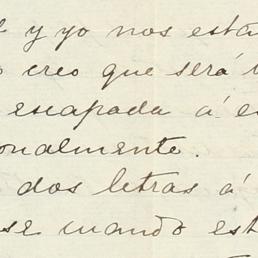 y yo nos está
creo que será
escapada á e
onalmente.
dos letras á
se cuando est